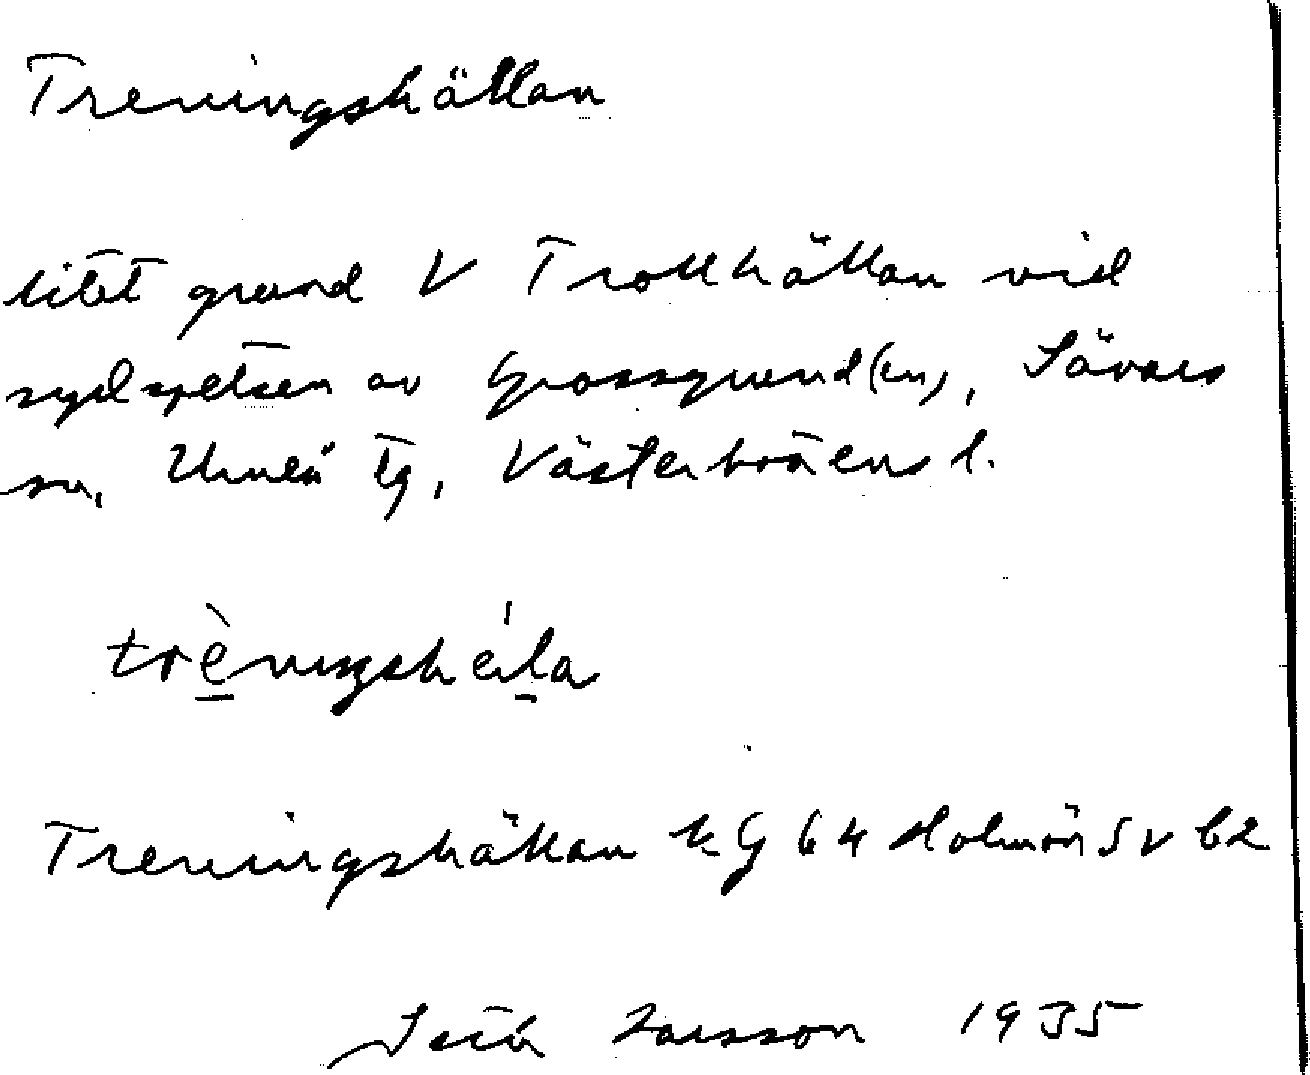 Treningshällan
litet grund V Trollhällan vid
sydspetsen av Grossgrund(en), Sävars
sn, Umeå tg, Västerbottens l.
trèningshéla
Treningshällan kg 64 Holmön SV b2
Larsson 1935